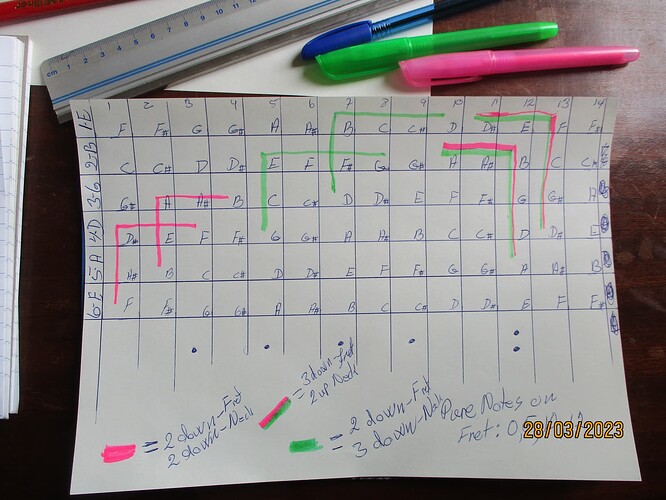 cm 1 2 3 4 5 6 7 8 9 10 11 12
1 2 3 4 5 6 7 8 9 10 11 12 13 14
1-E F F# G G# A A# B C C# D D# E F F#
2-B C C# D D# E F F# G G# A A# B C C#
3-G G# A A# B C C# D D# E F F# G G# A
4-D D# E F F# G G# A A# B C C# D D# E
5-A A# B C C# D D# E F F# G G# A A# B
6-E F F# G G# A A# B C C# D D# E F F#
= 2 down-Fret
2 down-Neck
= 3 down-Fret
2 up Neck
= 2 down-Fret
3 down-Neck
Pure Notes on
Fret: 0,5,
28/03/2023